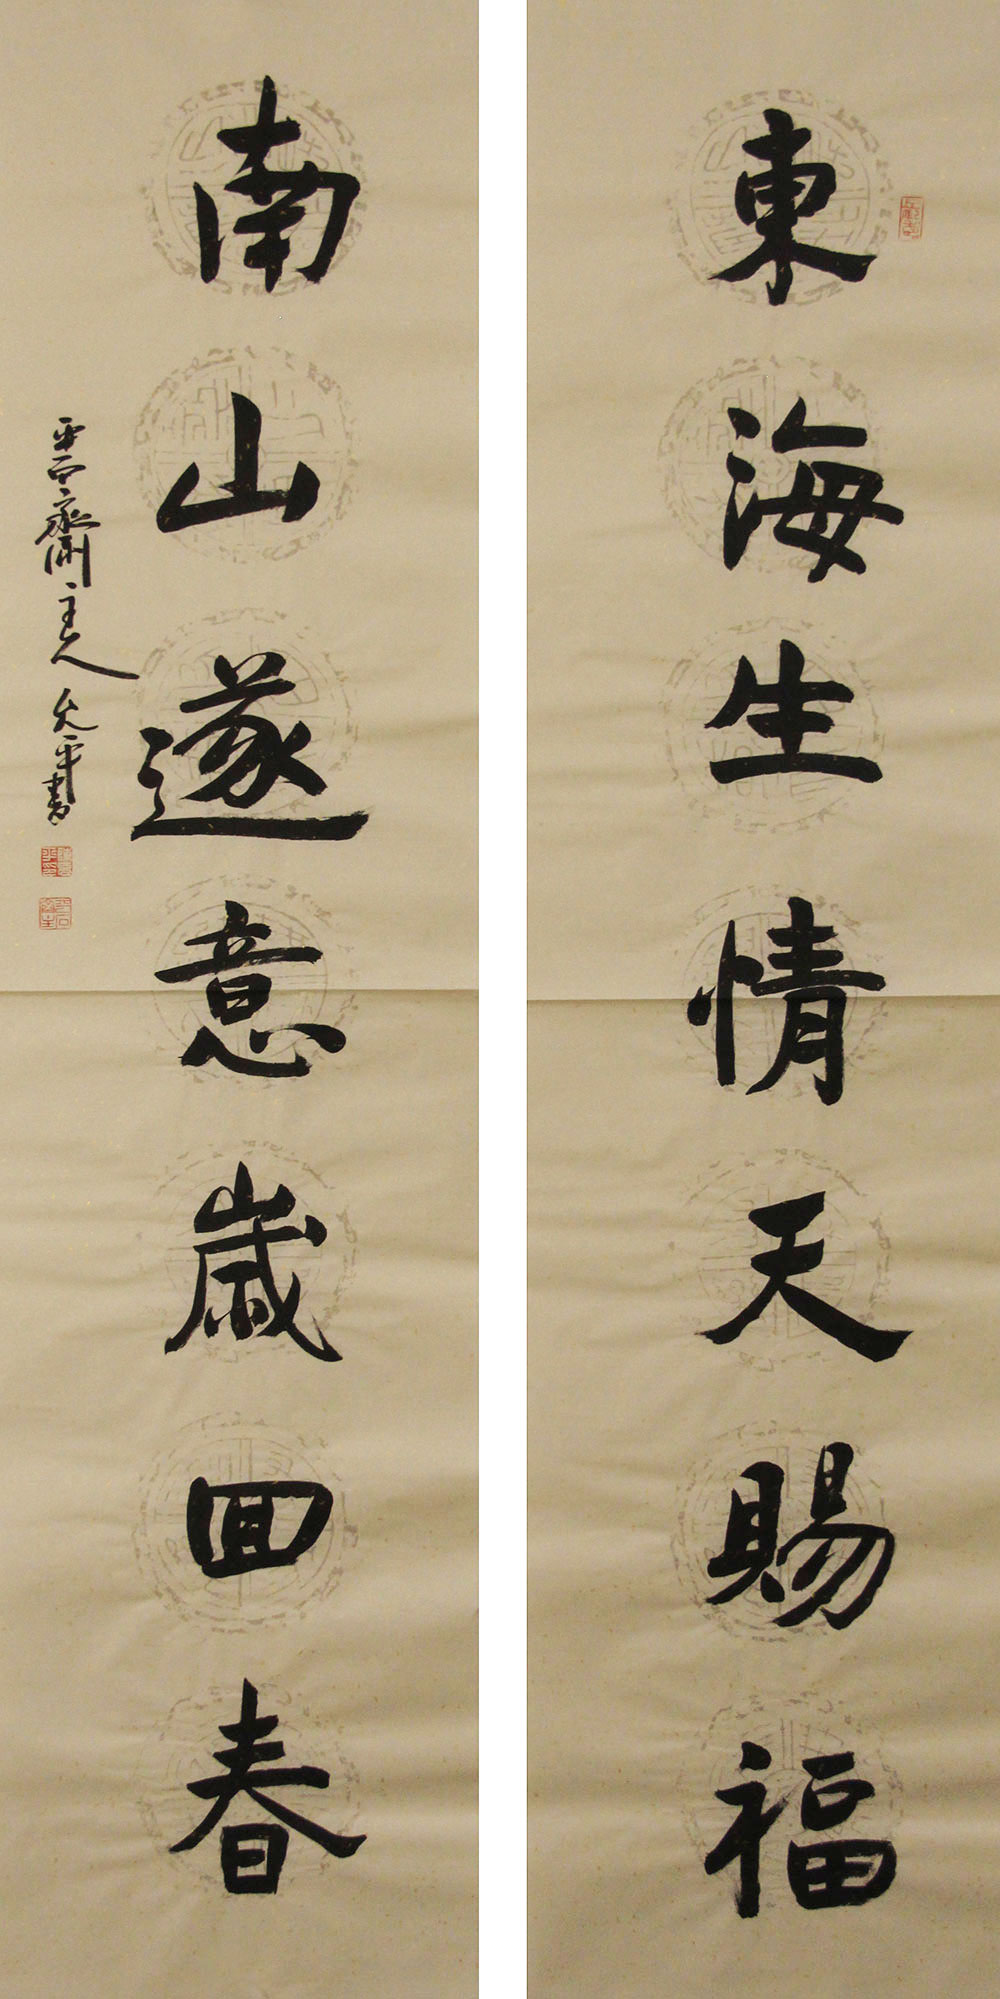 東海生情天賜福
南山遂意歲回春
齋主人久平書